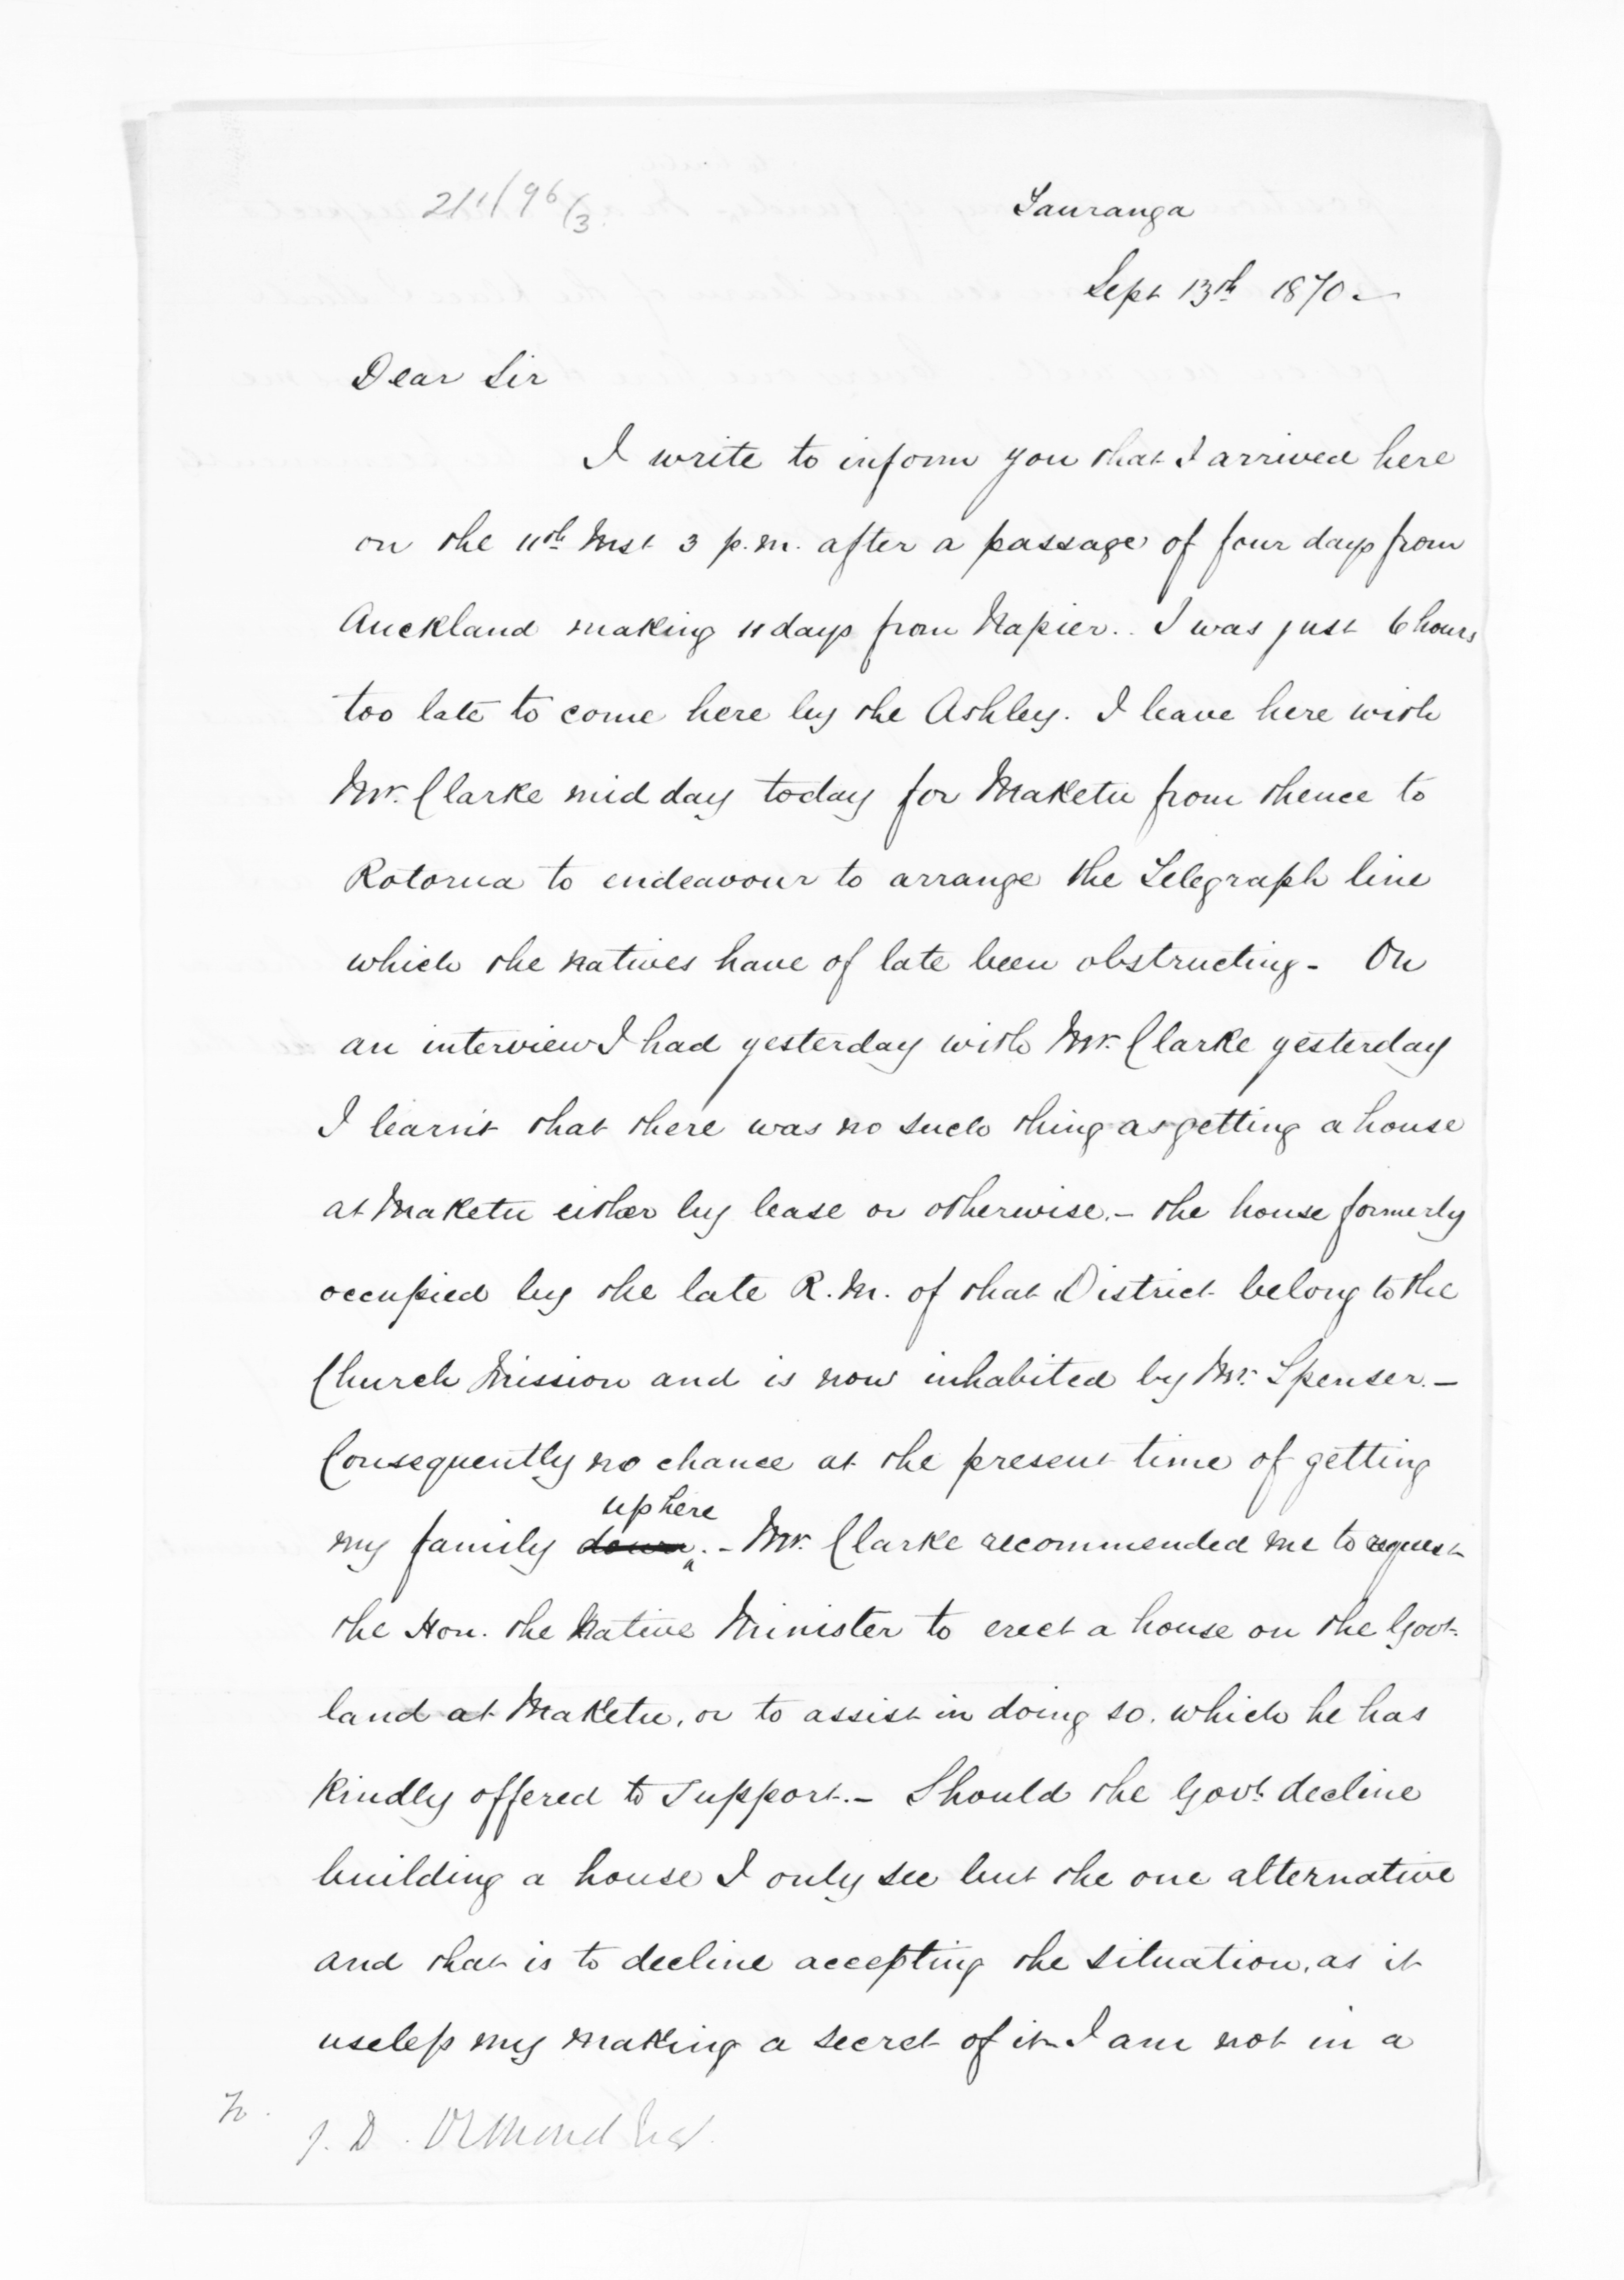 Tauranga
Sept 13th 1870 –
Dear Sir
I write to inform you that I arrived here
on the 11th Inst 3 p.m. after a passage of four days from
Auckland making 11 days from Napier.. I was just 6 hours
too late to come here by the Ashley. I leave here with
Mr. Clarke mid day today for Maketu from thence to
Rotorua to endeavour to arrange the Telegraph line
which the natives have of late been obstructing - On
an interview I had yesterday with Mr. Clarke yesterday
I learnt that there was no such thing as getting a house
at Maketu either by lease or otherwise. – the house formerly
occupied by the late R.M. of that District belong to the
Church Mission and is now inhabited by Mr. Spenser. –
Consequently no chance at the present time of getting
up here
my family down. – Mr. Clarke recommended me to request
the Hon. the Native Minister to erect a house on the Govt.
land at Maketu, or to assist in doing so. which he has
kindly offered to support. – Should the Govt. decline
building a house I only see but the one alternative
and that is to decline accepting the situation, as it
useless my making a secret of it I am not in a
To.
J. D. Ormond Esq.